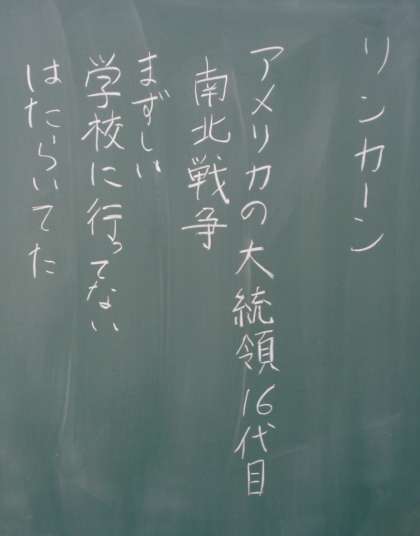 リンカーン
アメリカの大統領16代目
南北戦争
まずしい
学校に行ってない
はたらいてた